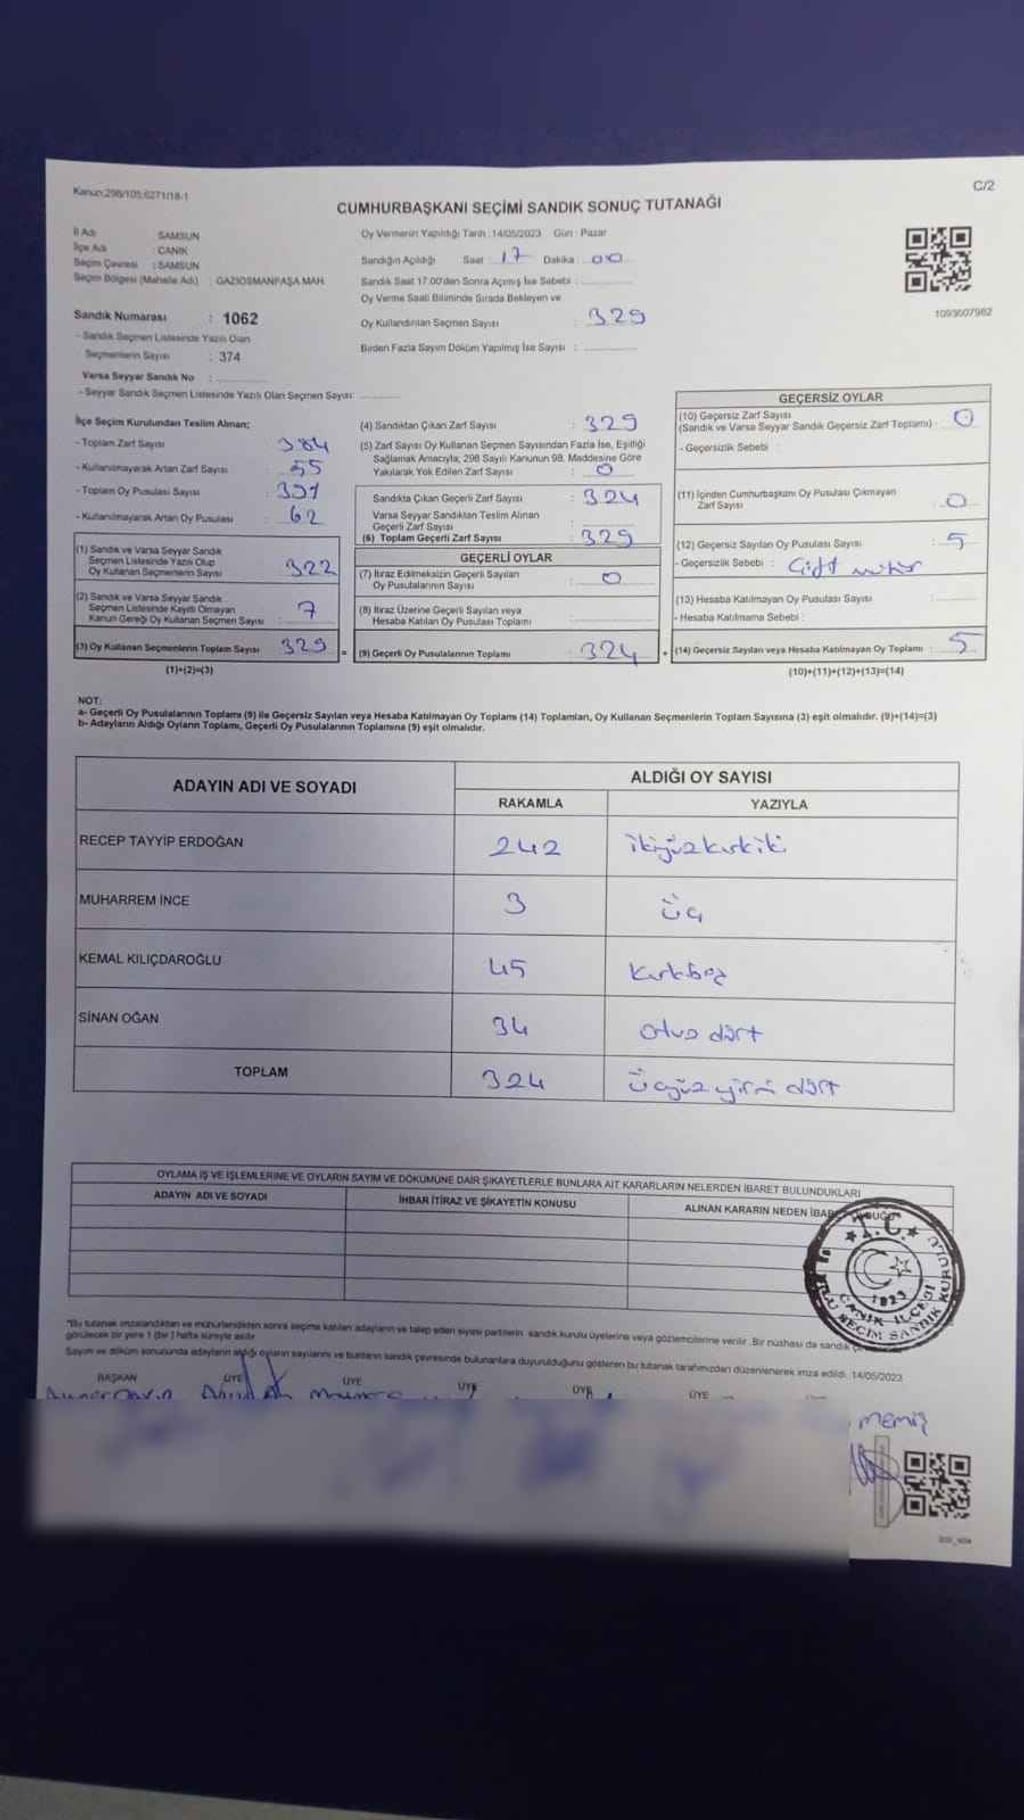 Kanun:298/105;6271/18-1
C/2
CUMHURBAŞKANI SEÇİMİ SANDIK SONUÇ TUTANAĞI
İl Adı SAMSUN
İlçe Adı : CANİK
Seçim Çevresi : SAMSUN
Seçim Bölgesi (Mahalle Adı) : GAZİOSMANPAŞA MAH.
Oy Vermenin Yapıldığı Tarih :14/05/2023 Gün : Pazar
Sandığın Açıldığı Saat : 17 Dakika : 00
Sandık Saat 17.00'den Sonra Açılmış İse Sebebi :
Oy Verme Saati Bitiminde Sırada Bekleyen ve
Oy Kullandırılan Seçmen Sayısı : 329
Birden Fazla Sayım Döküm Yapılmış İse Sayısı :
1093007982
Sandık Numarası : 1062
- Sandık Seçmen Listesinde Yazılı Olan
Seçmenlerin Sayısı : 374
Varsa Seyyar Sandık No :
- Seyyar Sandık Seçmen Listesinde Yazılı Olan Seçmen Sayısı:
İlçe Seçim Kurulundan Teslim Alınan;
- Toplam Zarf Sayısı : 384
- Kullanılmayarak Artan Zarf Sayısı : 55
- Toplam Oy Pusulası Sayısı : 391
- Kullanılmayarak Artan Oy Pusulası : 62
(1) Sandık ve Varsa Seyyar Sandık
Seçmen Listesinde Yazılı Olup
Oy Kullanan Seçmenlerin Sayısı : 322
(2) Sandık ve Varsa Seyyar Sandık
Seçmen Listesinde Kayıtlı Olmayan
Kanun Gereği Oy Kullanan Seçmen Sayısı : 7
(3) Oy Kullanan Seçmenlerin Toplam Sayısı : 329
(1)+(2)=(3)
(4) Sandıktan Çıkan Zarf Sayısı : 329
(5) Zarf Sayısı Oy Kullanan Seçmen Sayısından Fazla İse, Eşitliği
Sağlamak Amacıyla, 298 Sayılı Kanunun 98. Maddesine Göre
Yakılarak Yok Edilen Zarf Sayısı : 0
Sandıkta Çıkan Geçerli Zarf Sayısı : 324
Varsa Seyyar Sandıktan Teslim Alınan
Geçerli Zarf Sayısı :
(6) Toplam Geçerli Zarf Sayısı : 329
GEÇERLİ OYLAR
(7) İtiraz Edilmeksizin Geçerli Sayılan
Oy Pusulalarının Sayısı : 0
(8) İtiraz Üzerine Geçerli Sayılan veya
Hesaba Katılan Oy Pusulası Toplamı :
= (9) Geçerli Oy Pusulalarının Toplamı : 324
GEÇERSİZ OYLAR
(10) Geçersiz Zarf Sayısı
(Sandık ve Varsa Seyyar Sandık Geçersiz Zarf Toplamı) : 0
- Geçersizlik Sebebi :
(11) İçinden Cumhurbaşkanı Oy Pusulası Çıkmayan
Zarf Sayısı : 0
(12) Geçersiz Sayılan Oy Pusulası Sayısı : 5
- Geçersizlik Sebebi : Çift mühür
(13) Hesaba Katılmayan Oy Pusulası Sayısı :
- Hesaba Katılmama Sebebi :
+ (14) Geçersiz Sayılan veya Hesaba Katılmayan Oy Toplamı : 5
(10)+(11)+(12)+(13)=(14)
NOT:
a- Geçerli Oy Pusulalarının Toplamı (9) ile Geçersiz Sayılan veya Hesaba Katılmayan Oy Toplamı (14) Toplamları, Oy Kullanan Seçmenlerin Toplam Sayısına (3) eşit olmalıdır. (9)+(14)=(3)
b- Adayların Aldığı Oyların Toplamı, Geçerli Oy Pusulalarının Toplamına (9) eşit olmalıdır.
ADAYIN ADI VE SOYADI ALDIĞI OY SAYISI
RAKAMLA YAZIYLA
RECEP TAYYİP ERDOĞAN 242 ikiyüzkırkiki
MUHARREM İNCE 3 üç
KEMAL KILIÇDAROĞLU 45 kırkbeş
SİNAN OĞAN 34 otuz dört
TOPLAM 324 üçyüz yirmi dört
OYLAMA İŞ VE İŞLEMLERİNE VE OYLARIN SAYIM VE DÖKÜMÜNE DAİR ŞİKAYETLERLE BUNLARA AİT KARARLARIN NELERDEN İBARET BULUNDUKLARI
ADAYIN ADI VE SOYADI İHBAR İTİRAZ VE ŞİKAYETİN KONUSU ALINAN KARARIN NEDEN İBAR
T.C.
1923
CANİK İLÇESİ
SEÇİM SANDIK KURULU
"Bu tutanak imzalandıktan ve mühürlendikten sonra seçime katılan adayların ve talep eden siyasi partilerin sandık kurulu üyelerine veya gözlemcilerine verilir. Bir nüshası da sandık
görülecek bir yere 1 (bir) hafta süreyle asılır.
Sayım ve döküm sonucunda adayların aldığı oyların sayılarını ve bunların sandık çevresinde bulunanlara duyurulduğunu gösteren bu tutanak tarafımızdan düzenlenerek imza edildi. 14/05/2023
BAŞKAN ÜYE ÜYE ÜYE ÜYE ÜYE
memiş